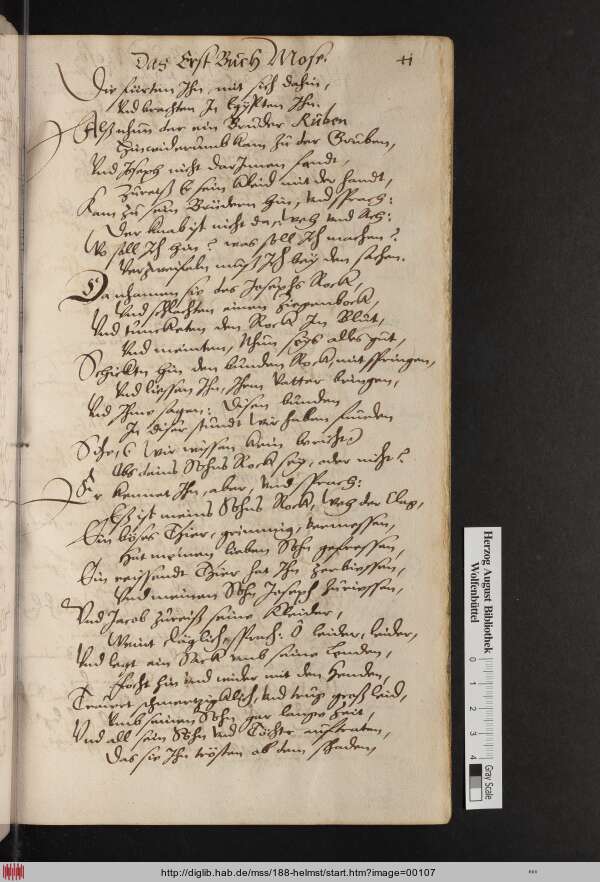 Das Erst Buch Mose. 44
Die fürten Ihn, mit sich dahin,
Vnd brachten In Egÿpten Ihn.
Alß nhun der ein Bruder Rüben
Hinwiderumb kam zu der Gruben,
Vnd Joseph nicht darInnen fandt,
Zureiß Er sein Kleid mit der handt,
Kam zu sein Brüdern hin, vnd sprach:
Der knab ist nicht da, weh vnd Ach:
Wo soll Ich hin? was soll Ich machen?
Verzweifeln muß Ich beÿ den sachen.
Da nhamen sie des Josephs Rock,
Vnd schlachten einen Ziegenbock,
Vnd tuncketen den Rock In Blut,
Vnd meinten, Nhun seÿs alles gut,
Schickten hin den bunden Rock, mit springen,
Vnd liessen Ihn, Ihrem Vatter bringen,
Vnd Ihme sagen: Disen bunden
In diser stundt wir haben funden
Sehe, (wir wissen kein bericht)
Obs deins Sohns Rock seÿ, oder nicht?
Er kennet Ihn, aber, vnd sprach:
Eß ist meins Sohns Rock, weh der Clag,
Ein böses Thier, grimmig, vermessen,
Hat meinen lieben Sohn gefressen,
Ein reissendt Thier hat Ihn zerbiessen,
Vnd meinen Sohn Joseph zuriessen,
Vnd Jacob zureiß seine Kleider,
Weint kläglich, sprach: O leider, leider,
Vnd legt ein Sack vmb seine Lenden,
Focht hin vnd wider mit den Henden,
Trauret schmertzigklich, vnd trug groß leid,
Vmb seinen Sohn gar lange Zeit,
Vnd all sein Söhn vnd Töchter aufftraten,
Das sie Ihn trösten ob dem schaden
Herzog August Bibliothek
Wolfenbüttel
0 1 2 3 4
Gray Scale
http://diglib.hab.de/mss/188-helmst/start.htm?image=00107